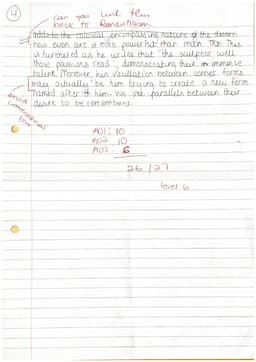 4
can you link this
back to Romanticism
adds to the colossal, encompassing nature of the desert
how even art is more powerful than man. This
is furthered as he writes that "the sculptor well
those passions read", demonstrating their immense
talent. Moreover, his vacillation between sonnet forms
may actually be him trying to create a new form
named after him. We see parallels between their
desire to be remembered.
avoid
conversational
tone
AO1: 10
AO2: 10
AO3: 6
26/27
level 6